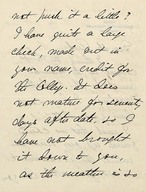 not push it a little?
I have quite a large
check, made out in
your name, credit for
the Colby. It does
not mature for seventy
days after date. So I
have not brought
it down to you,
as the weather is so